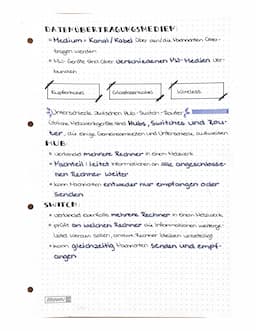 DATENÜBERTRAGUNGSMEDIEN:
• Medium = Kanal/Kabel über den/die Nachrichten über-
tragen werden
• NW-Geräte sind über verschiedenen NW-Medien ver-
bunden
Kupferkabel
Glasfaserkabel
Wireless
Unterschiede zwischen Hub-Switch-Router
Gängige Netzwerkgeräte sind Hubs, Switches und Rou-
ter, die einige Gemeinsamkeiten und Unterschiede aufweisen
HUB:
• verbindet mehrere Rechner in einem Netzwerk
• Nachteil: leitet Informationen an alle angeschlosse-
nen Rechner weiter
• kann Nachrichten entweder nur empfangen oder
senden
SWITCH:
• verbindet ebenfalls mehrere Rechner in einem Netzwerk
• prüft an welchen Rechner die Informationen weiterge-
leitet werden sollen, andere Rechner bleiben unbeteiligt
• kann gleichzeitig Nachrichten senden und empf-
angen